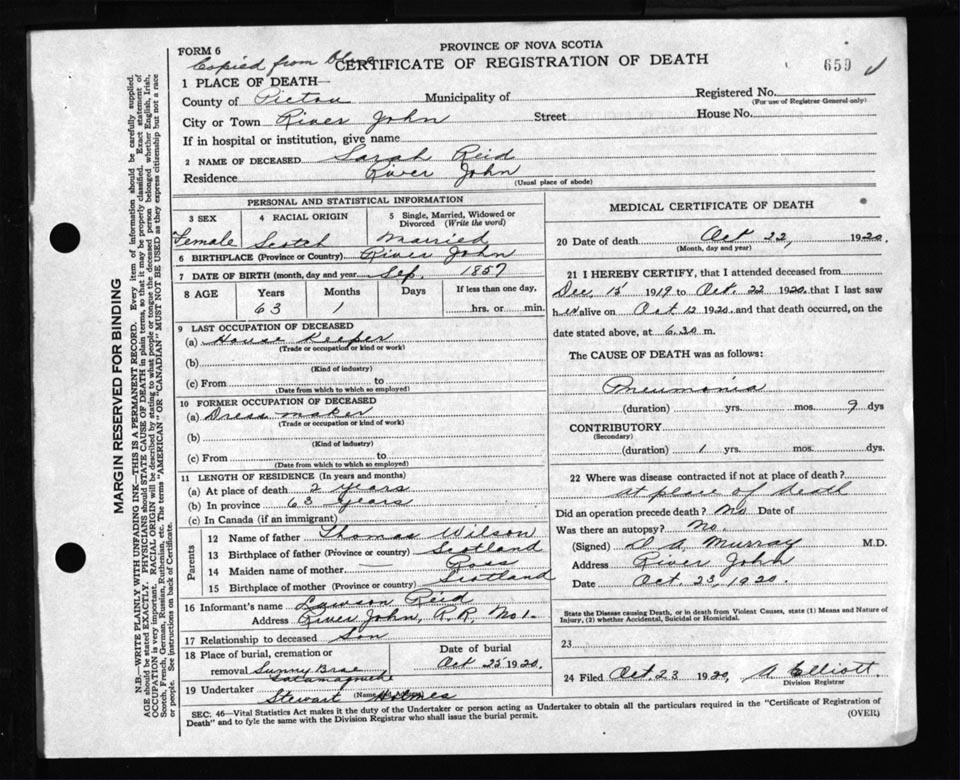 FORM 6
PROVINCE OF NOVA SCOTIA
Copied from
CERTIFICATE OF REGISTRATION OF DEATH
659
1 PLACE OF DEATH—
Registered No.
(For use of Registrar General only)
County of Pictou Municipality of
City or Town River John Street House No.
If in hospital or institution, give name
2 NAME OF DECEASED Sarah Reid
Residence River John
(Usual place of abode)
PERSONAL AND STATISTICAL INFORMATION
3 SEX 4 RACIAL ORIGIN 5 Single, Married, Widowed or Divorced (Write the word)
Female Scotch Married
6 BIRTHPLACE (Province or Country) River John
7 DATE OF BIRTH (month, day and year) Sep. 1857
8 AGE Years Months Days If less than one day,
63 1 hrs. or min.
9 LAST OCCUPATION OF DECEASED
(a) House Keeper
(Trade or occupation or kind or work)
(b)
(Kind of industry)
(c) From to
(Date from which to which so employed)
10 FORMER OCCUPATION OF DECEASED
(a) Dress maker
(Trade or occupation or kind of work)
(b)
(Kind of industry)
(c) From to
(Date from which to which so employed)
11 LENGTH OF RESIDENCE (In years and months)
(a) At place of death 2 years
(b) In province 63 years
(c) In Canada (if an immigrant)
Parents
12 Name of father Thomas Wilson
13 Birthplace of father (Province or country) Scotland
14 Maiden name of mother — Ross
15 Birthplace of mother (Province or country) Scotland
16 Informant's name Lawson Reid
Address River John, R.R. No 1.
17 Relationship to deceased Son
18 Place of burial, cremation or removal Sunny Brae
Date of burial
Oct 25 1920.
19 Undertaker Stewart Holmes
(Name
MEDICAL CERTIFICATE OF DEATH
20 Date of death Oct 22, 1920.
(Month, day and year)
21 I HEREBY CERTIFY, that I attended deceased from
Dec. 15 1919 to Oct. 22 1920 that I last saw
her alive on Oct 12 1920. and that death occurred, on the
date stated above, at 6.30 m.
The CAUSE OF DEATH was as follows:
Pneumonia
(duration) yrs. mos. 9 dys
CONTRIBUTORY
(Secondary)
(duration) 1 yrs. mos. dys.
22 Where was disease contracted if not at place of death?
at place of death
Did an operation precede death? No Date of
Was there an autopsy? No.
(Signed) D A Murray M.D.
Address River John
Date Oct 23, 1920.
State the Disease causing Death, or in death from Violent Causes, state (1) Means and Nature of
Injury, (2) whether Accidental, Suicidal or Homicidal.
23
24 Filed Oct. 23 1920, A Elliott
Division Registrar
SEC. 46—Vital Statistics Act makes it the duty of the Undertaker or person acting as Undertaker to obtain all the particulars required in the "Certificate of Registration of
Death" and to fyle the same with the Division Registrar who shall issue the burial permit.
(OVER)
MARGIN RESERVED FOR BINDING
N.B.—WRITE PLAINLY WITH UNFADING INK—THIS IS A PERMANENT RECORD. Every item of information should be carefully supplied.
AGE should be stated EXACTLY. PHYSICIANS should STATE CAUSE OF DEATH in plain terms, so that it may be properly classified. Exact statement of
OCCUPATION is very important. RACIAL ORIGIN will be described by stating to what people or tongue the deceased person belonged whether English, Irish,
Scotch, French, German, Russian, Ruthenian, etc. The terms "AMERICAN" OR "CANADIAN" MUST NOT BE USED as they express citizenship but not a race
or people. See instructions on back of Certificate.